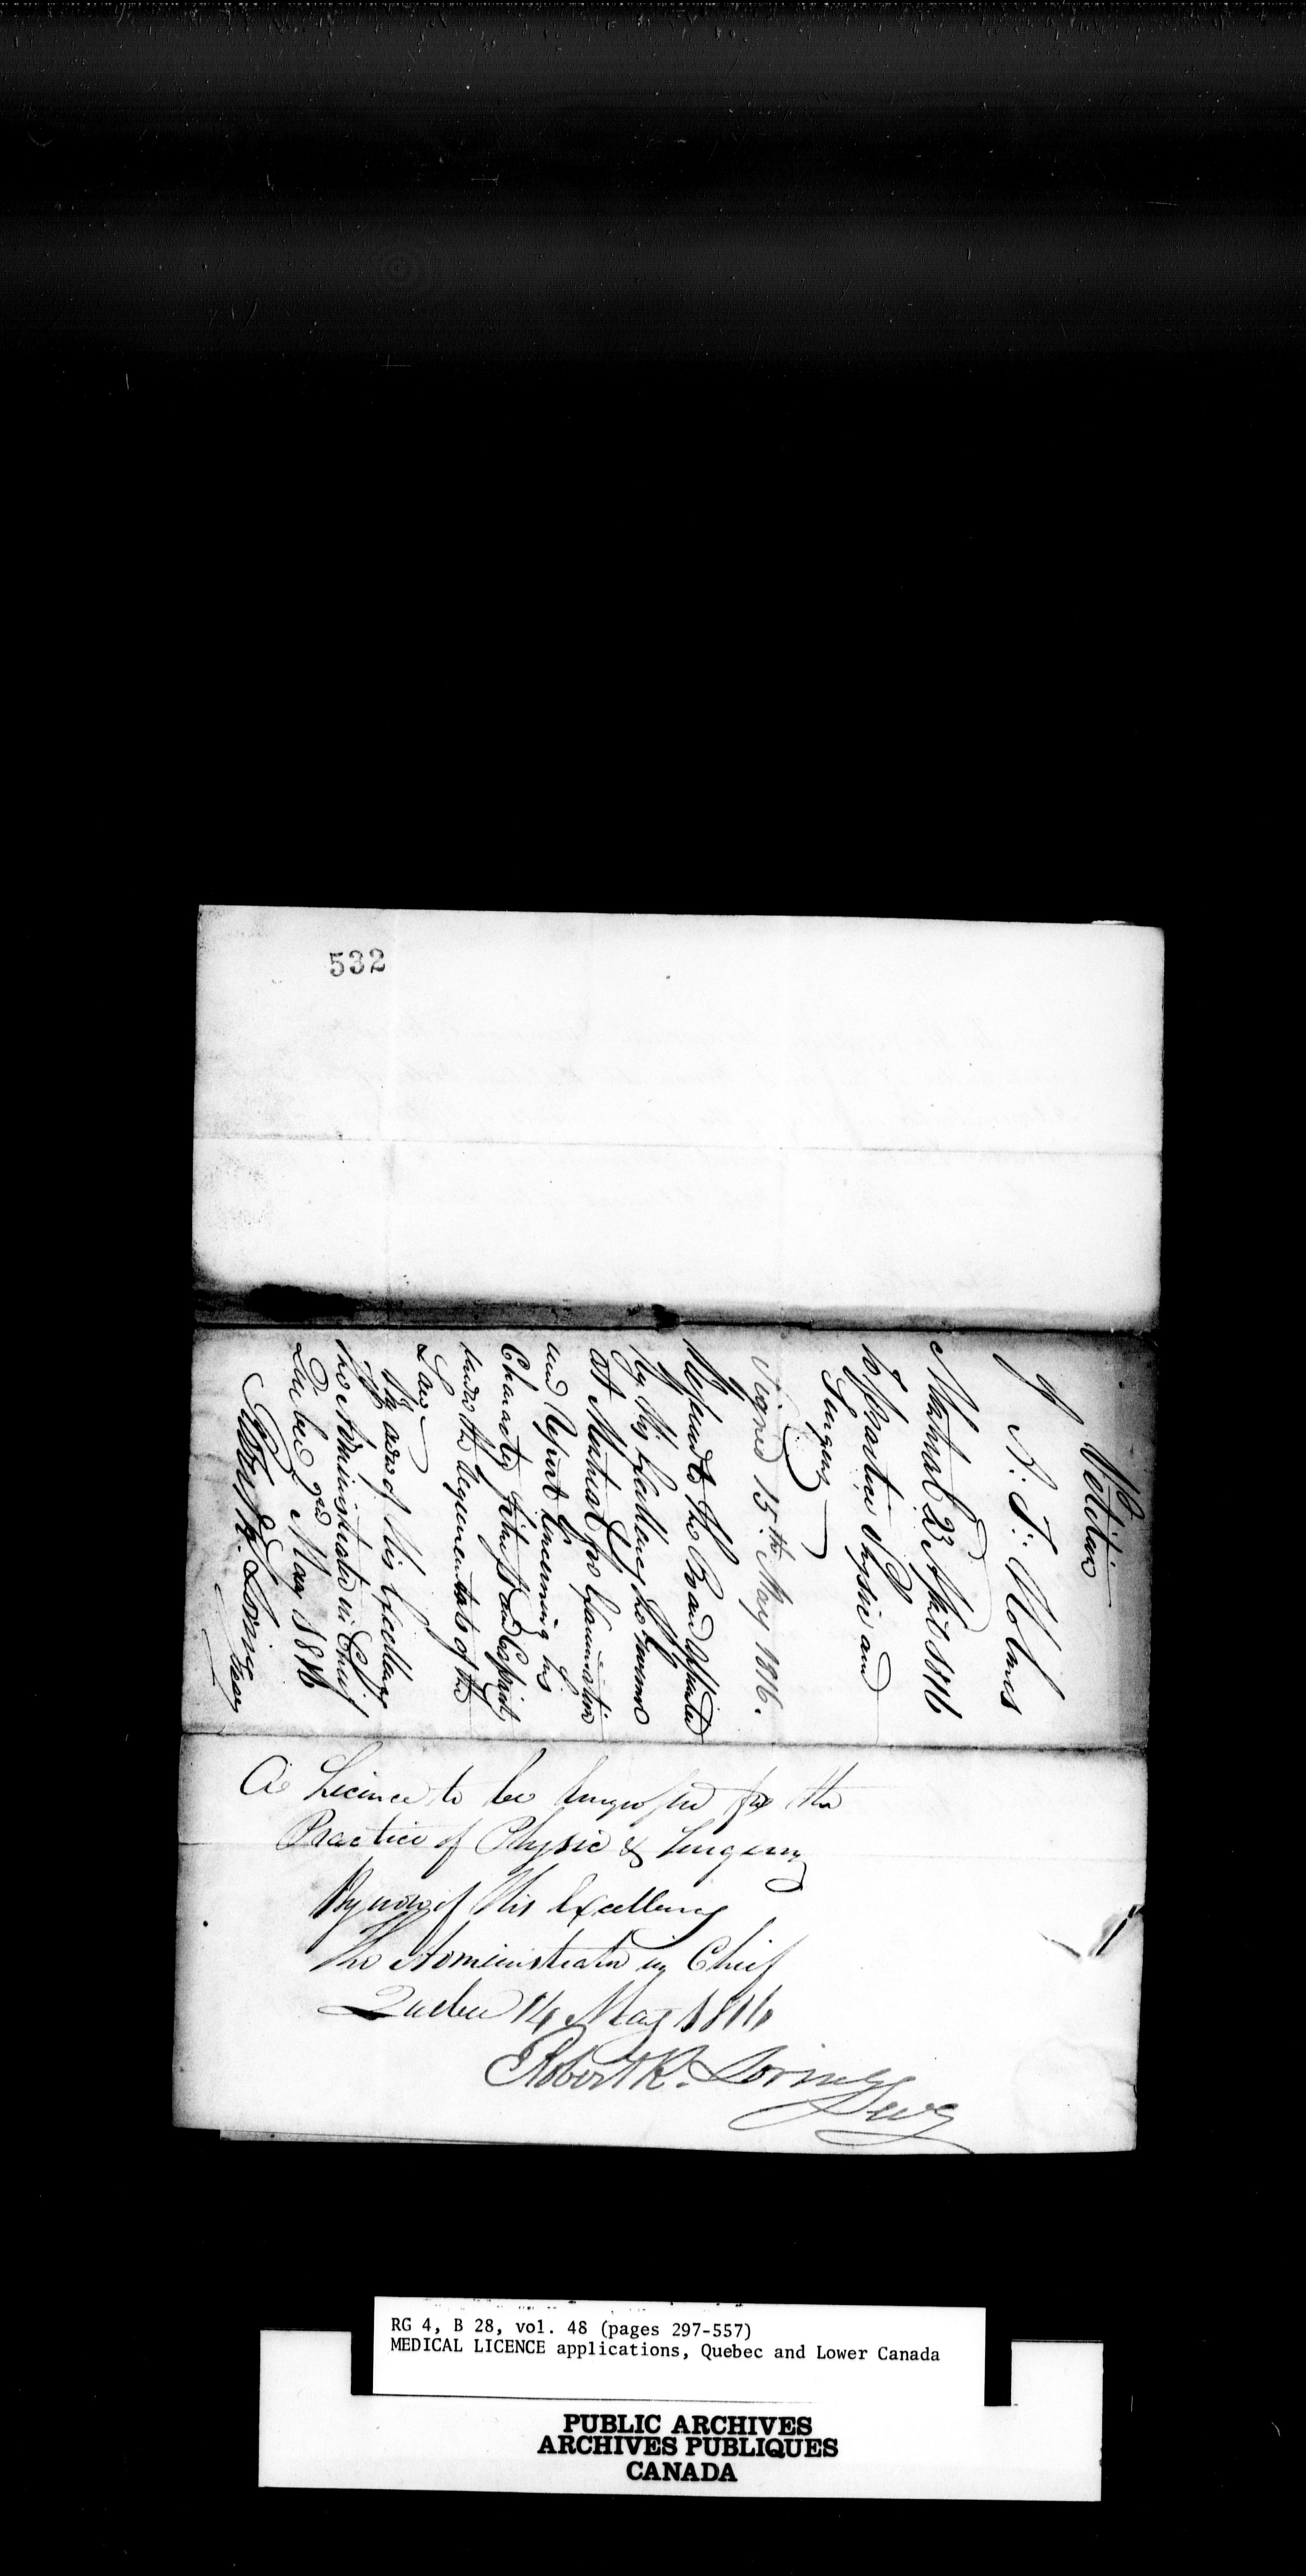 532
Petition
of
A: F: Holmes
Montreal 23 April 1816
to Practice Physic and
Surgery
Signed 15th May 1816.
Referred to the Board Appointed
By His Excellency the Governor
at Montreal for Examination
and Report Concerning his
Character, Fitness and Capacity
under the Requirements of the
Law
By order of His Excellency
The Administrator in Chief
Quebec 2nd May 1816
Robert R. Loring
Secy
A Licence to be Engrossed for the
Practice of Physic & Surgery
By order of His Excellency
The Administrator in Chief
Quebec 14 May 1816
Robert R. Loring
Secy
RG 4, B 28, vol. 48 (pages 297-557)
MEDICAL LICENCE applications, Quebec and Lower Canada
PUBLIC ARCHIVES
ARCHIVES PUBLIQUES
CANADA